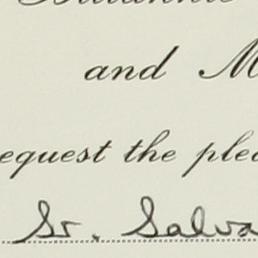 and M
equest the plea
Sr. Salva